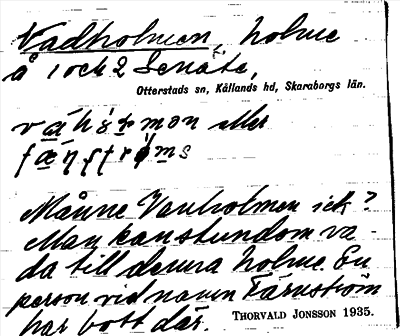 Vadholmen, holme
å 1 och 2 Senäte,
Otterstads sn, Kållands hd, Skaraborgs län.
eller
Månne Vanholmen ick?
Man kan stundom va-
da till denna holme. En
person vid namn Tärnström
har bott där.
THORVALD JONSSON 1935.